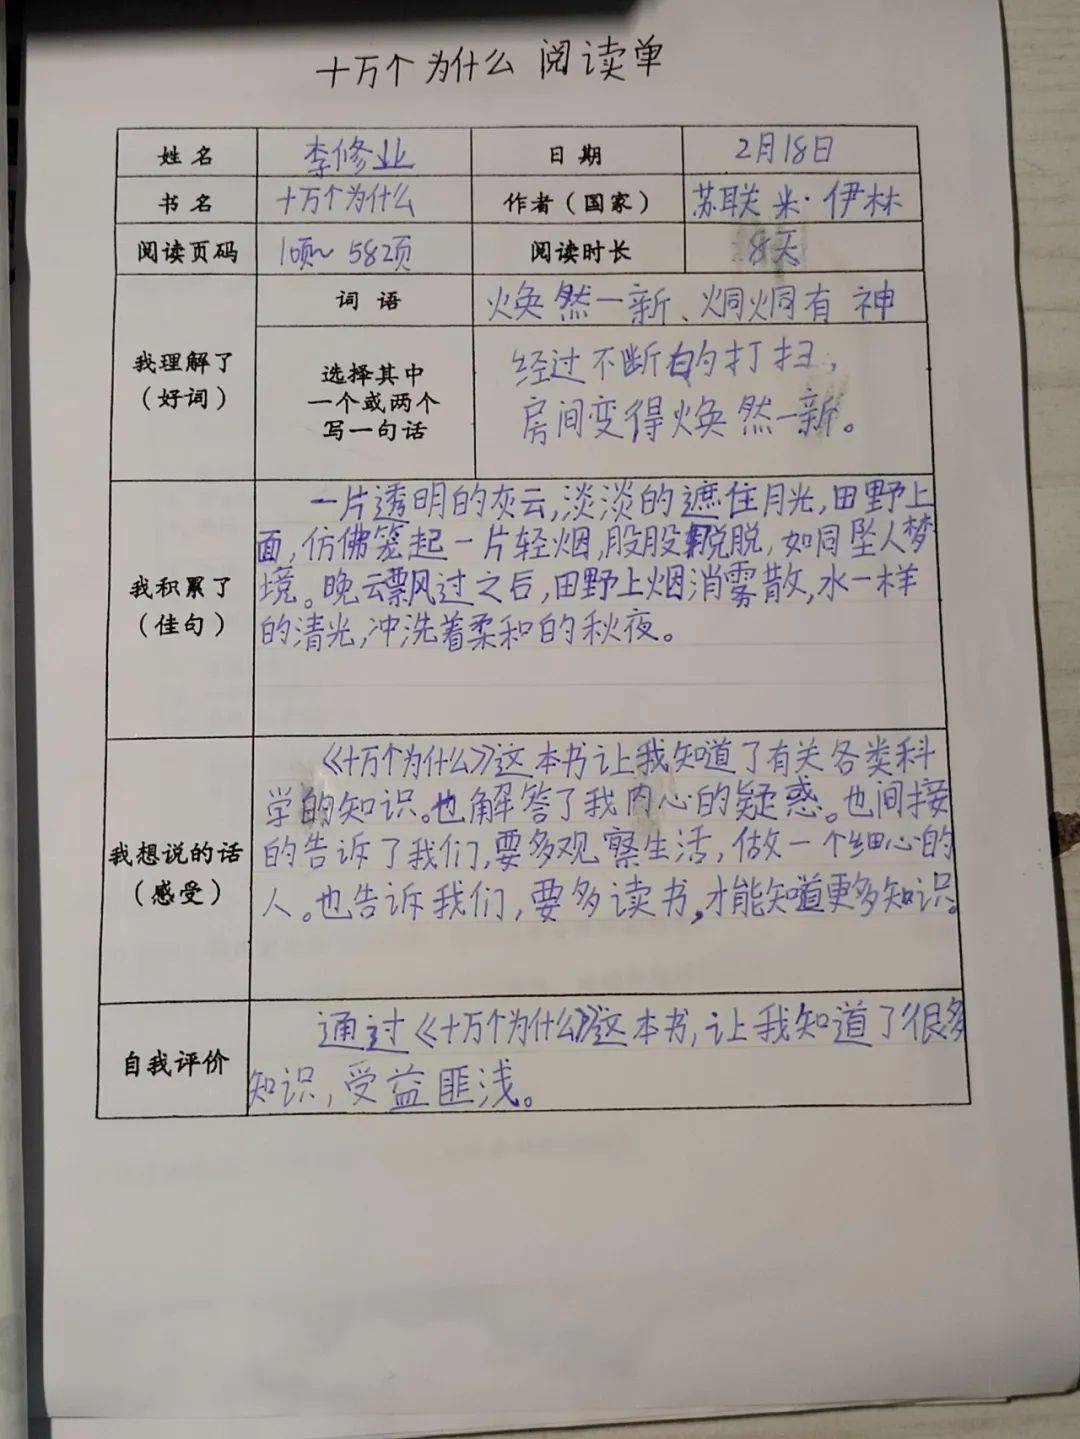 十万个为什么 阅读单
姓名 李修业 日期 2月18日
书名 十万个为什么 作者（国家） 苏联 米·伊林
阅读页码 1页~582页 阅读时长 8天
我理解了
（好词）
词语 焕然一新、炯炯有神
选择其中
一个或两个
写一句话
经过不断的打扫，
房间变得焕然一新。
我积累了
（佳句）
一片透明的灰云，淡淡的遮住月光，田野上
面，仿佛笼起一片轻烟，股股脱脱，如同坠人梦
境。晚云飘过之后，田野上烟消雾散，水一样
的清光，冲洗着柔和的秋夜。
我想说的话
（感受）
《十万个为什么》这本书让我知道了有关各类科
学的知识。也解答了我内心的疑惑。也间接
的告诉了我们，要多观察生活，做一个细心的
人。也告诉我们，要多读书，才能知道更多知识。
自我评价
通过《十万个为什么》这本书，让我知道了很多
知识，受益匪浅。